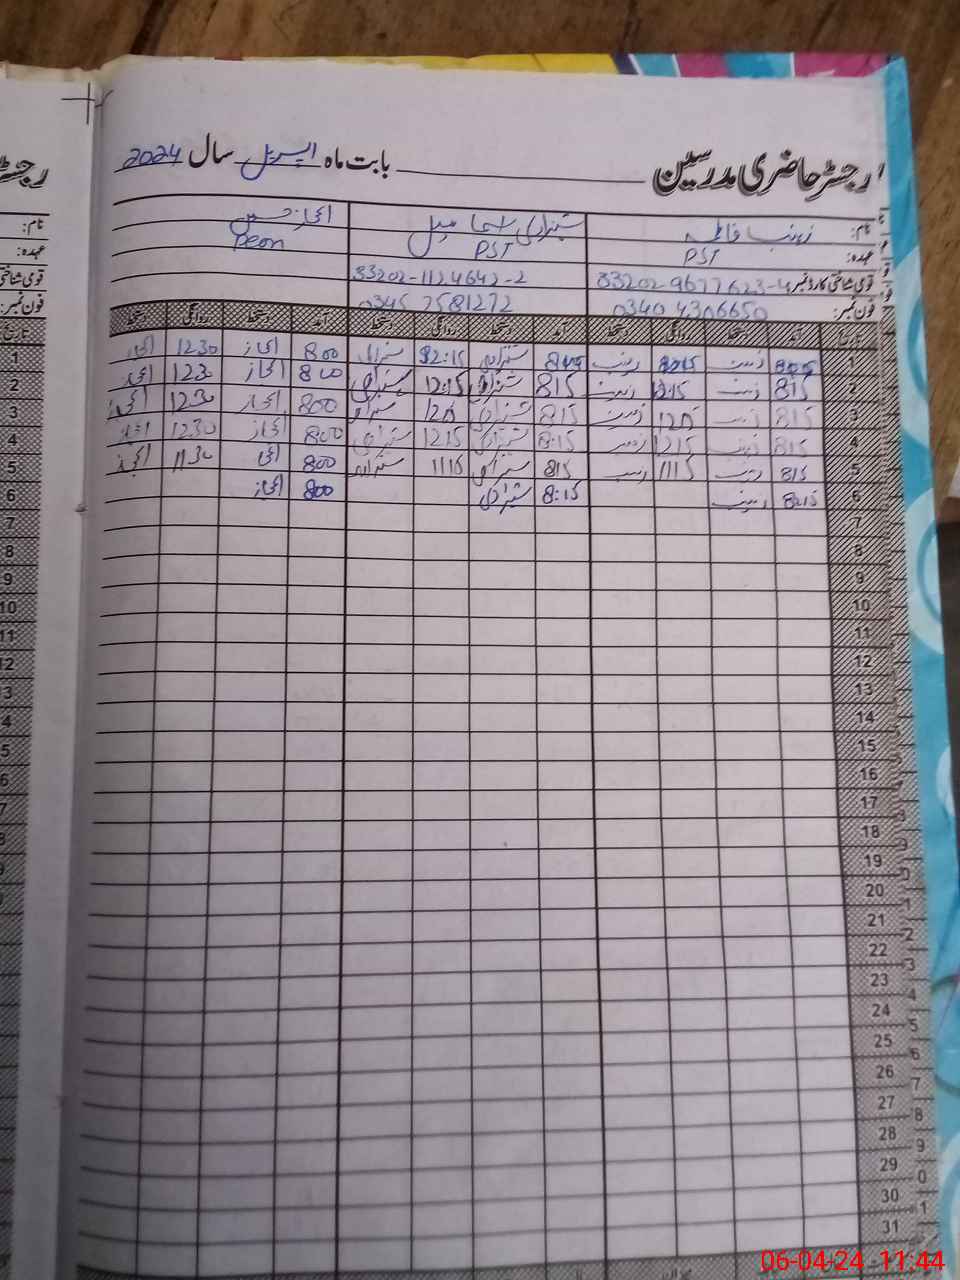 رجسٹر حاضری مدرسین بابت ماہ اپریل سال 2024
نام: زینب فاطمہ اعجاز حسین
عہدہ: PST PST Peon
قومی شناختی کارڈ نمبر 33202-9677623-4 33202-1124642-2
فون نمبر: 0340 4306650 0345 7581272
تاریخ آمد دستخط روانگی دستخط آمد دستخط روانگی دستخط آمد دستخط روانگی دستخط
1 زینب زینب 12:15 800 اعجاز 1230
2 815 زینب 12:15 زینب 815 شہزادی 12:15 شہزادی 800 اعجاز 1230
3 815 زینب زینب 815 شہزادی شہزادی 800 اعجاز 1230
4 815 زینب 1215 زینب 8:15 شہزادی 1215 شہزادی 800 اعجاز 1230
5 815 زینب 1115 زینب 815 شہزادی 1115 شہزادی 800 1130
6 8:15 زینب 8:15 شہزادی 800 اعجاز
7
8
9
10
11
12
13
14
15
16
17
18
19
20
21
22
23
24
25
26
27
28
29
30
31
06-04-24 11:44